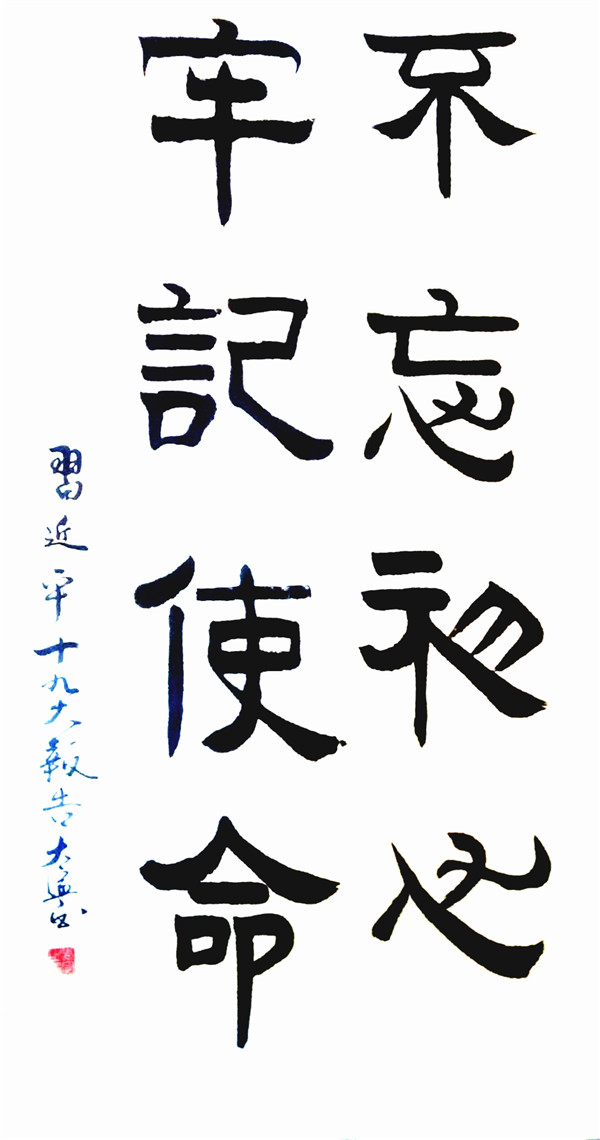 不忘初心
牢記使命
習近平十九大報告大興書